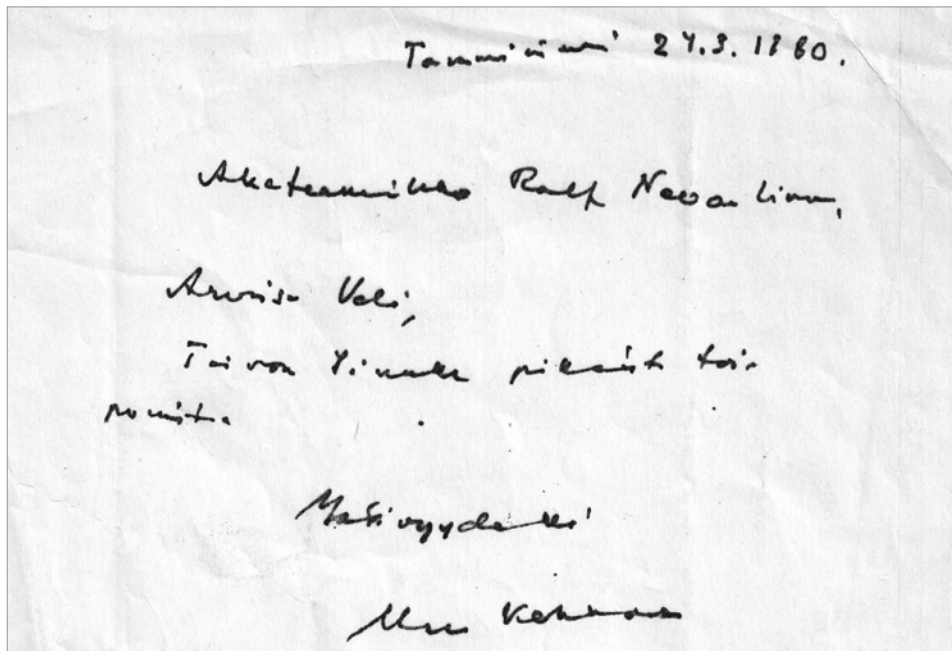 Tamminiemi 24.3.1960.
Akateemikko Rolf Nevanlinna,
Arvoisa Veli,
Toivon Sinulle pikaista toi-
pumista.
Ystävyydellä
Urho Kekkonen